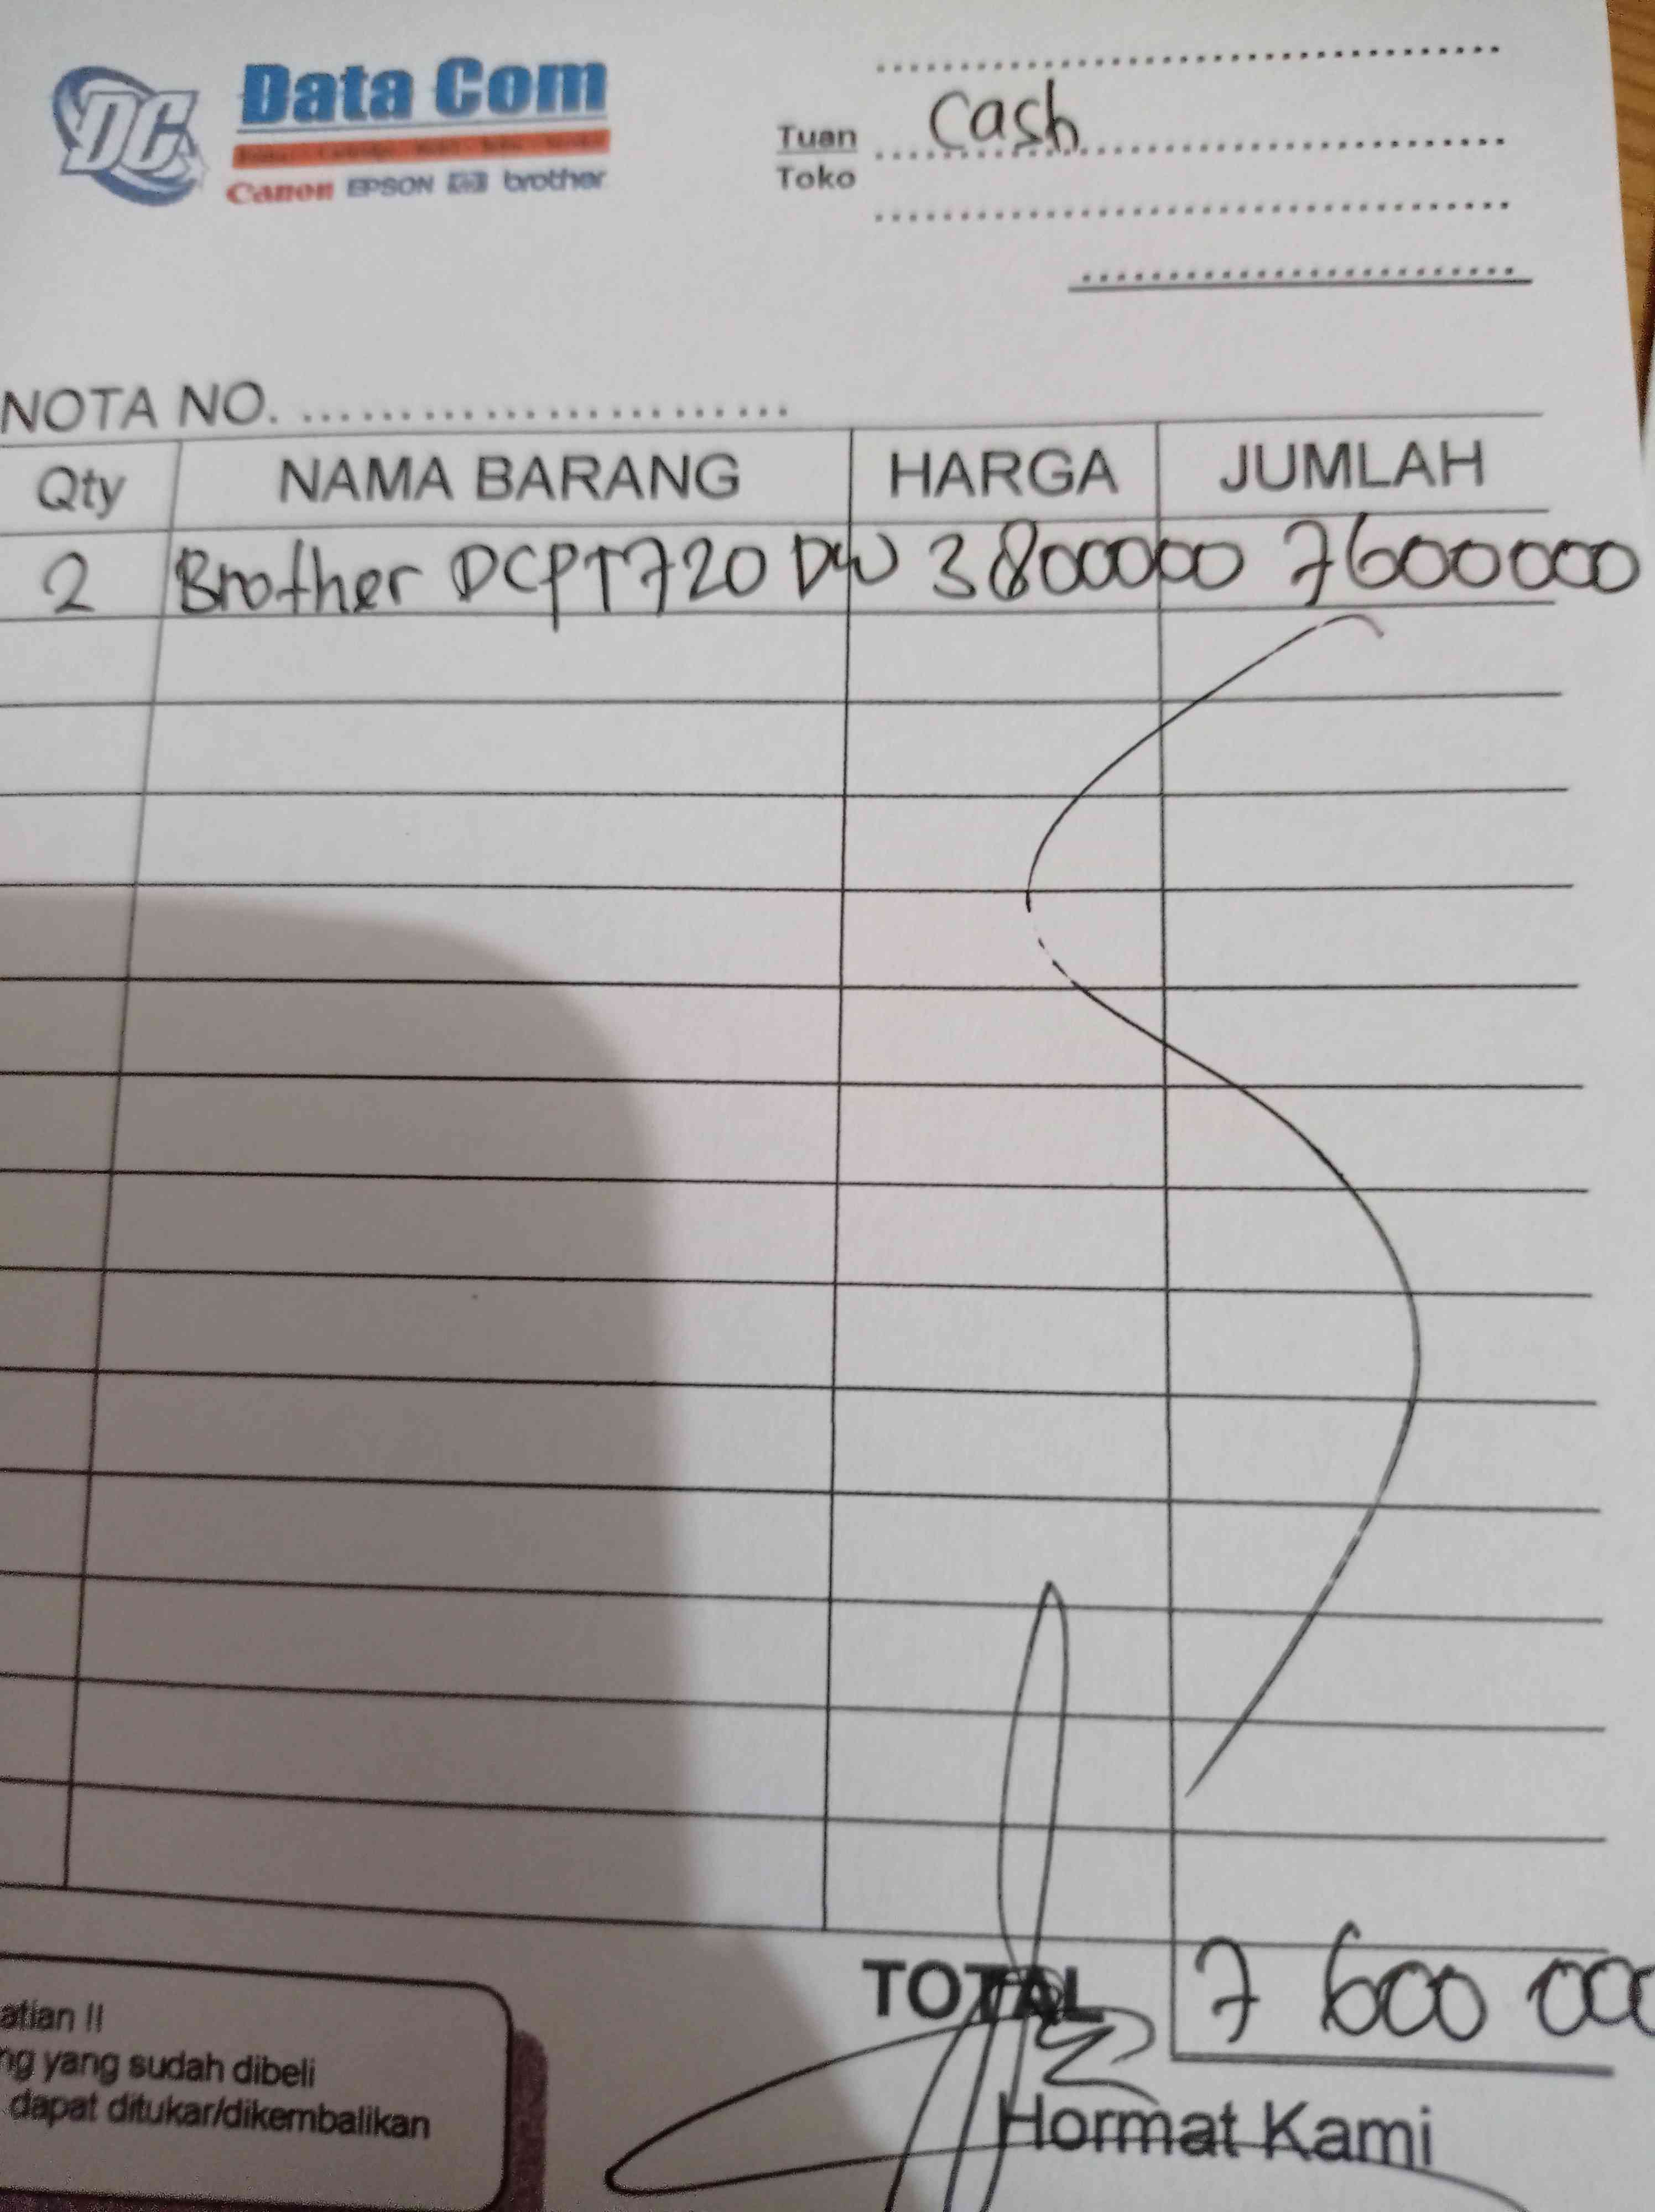 DC Data Com
Canon EPSON hp brother
Tuan Cash
Toko
NOTA NO.
Qty NAMA BARANG HARGA JUMLAH
2 Brother DCPT720 DW 3800000 7600000
TOTAL 7 600 000
atian II
ng yang sudah dibeli
dapat ditukar/dikembalikan
Hormat Kami